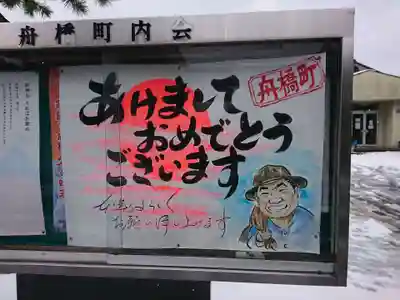 舟橋町内会
あけまして
おめでとう
ございます
舟橋町
本年もよろしく
お願い申し上げます